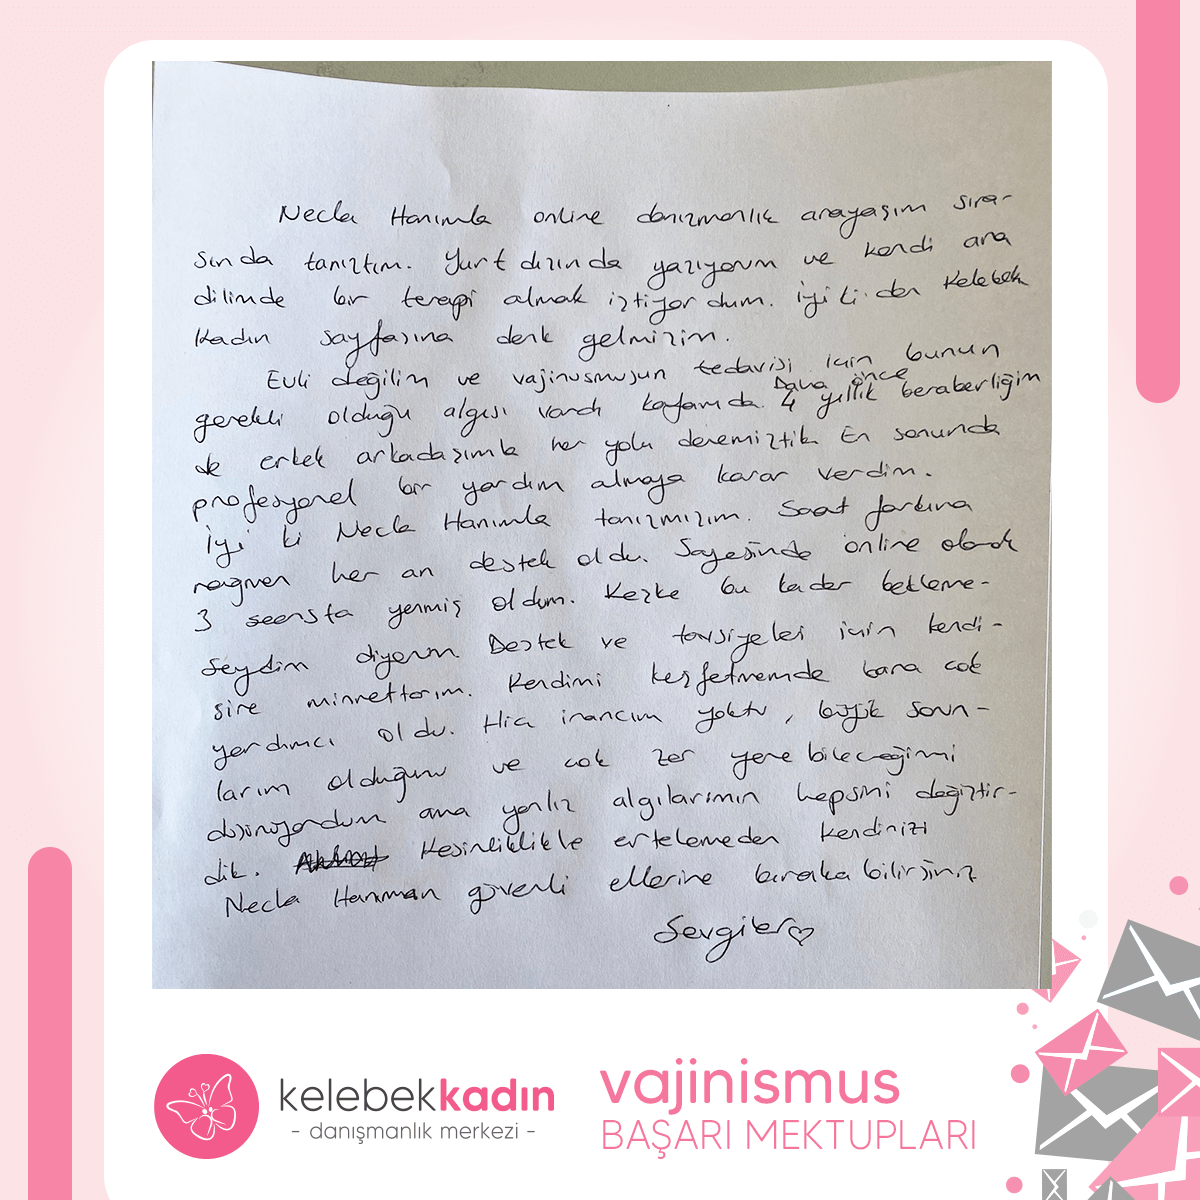 Necla Hanımla online danışmanlık arayışım sıra-
sında tanıştım. Yurt dışında yaşıyorum ve kendi ana
dilimde bir terapi almak istiyordum. İyi ki de Kelebek
Kadın sayfasına denk gelmişim.
Evli değilim ve vajinusmusun tedavisi için bunun
gerekli olduğu algısı vardı kafamda. Daha önce 4 yıllık beraberliğim
de erkek arkadaşımla her yolu denemiştik En sonunda
profesyonel bir yardım almaya karar verdim.
İyi ki Necla Hanımla tanışmışım. Saat farkına
rağmen her an destek oldu. Sayesinde online olarak
3 seansta yenmiş oldum. Keşke bu kadar bekleme-
seydim diyorum. Destek ve tavsiyeleri için kendi-
sine minnettarım. Kendimi keşfetmemde bana çok
yardımcı oldu. Hiç inancım yoktu, büyük sorun-
larım olduğunu ve çok zor yenebileceğimi
düşünüyordum ama yanlış algılarımın hepsini değiştir-
dik. Kesinliklikle ertelemeden kendinizi
Necla Hanımın güvenli ellerine bırakabilirsiniz
Sevgiler♡
kelebekkadın
- danışmanlık merkezi -
vajinismus
BAŞARI MEKTUPLARI